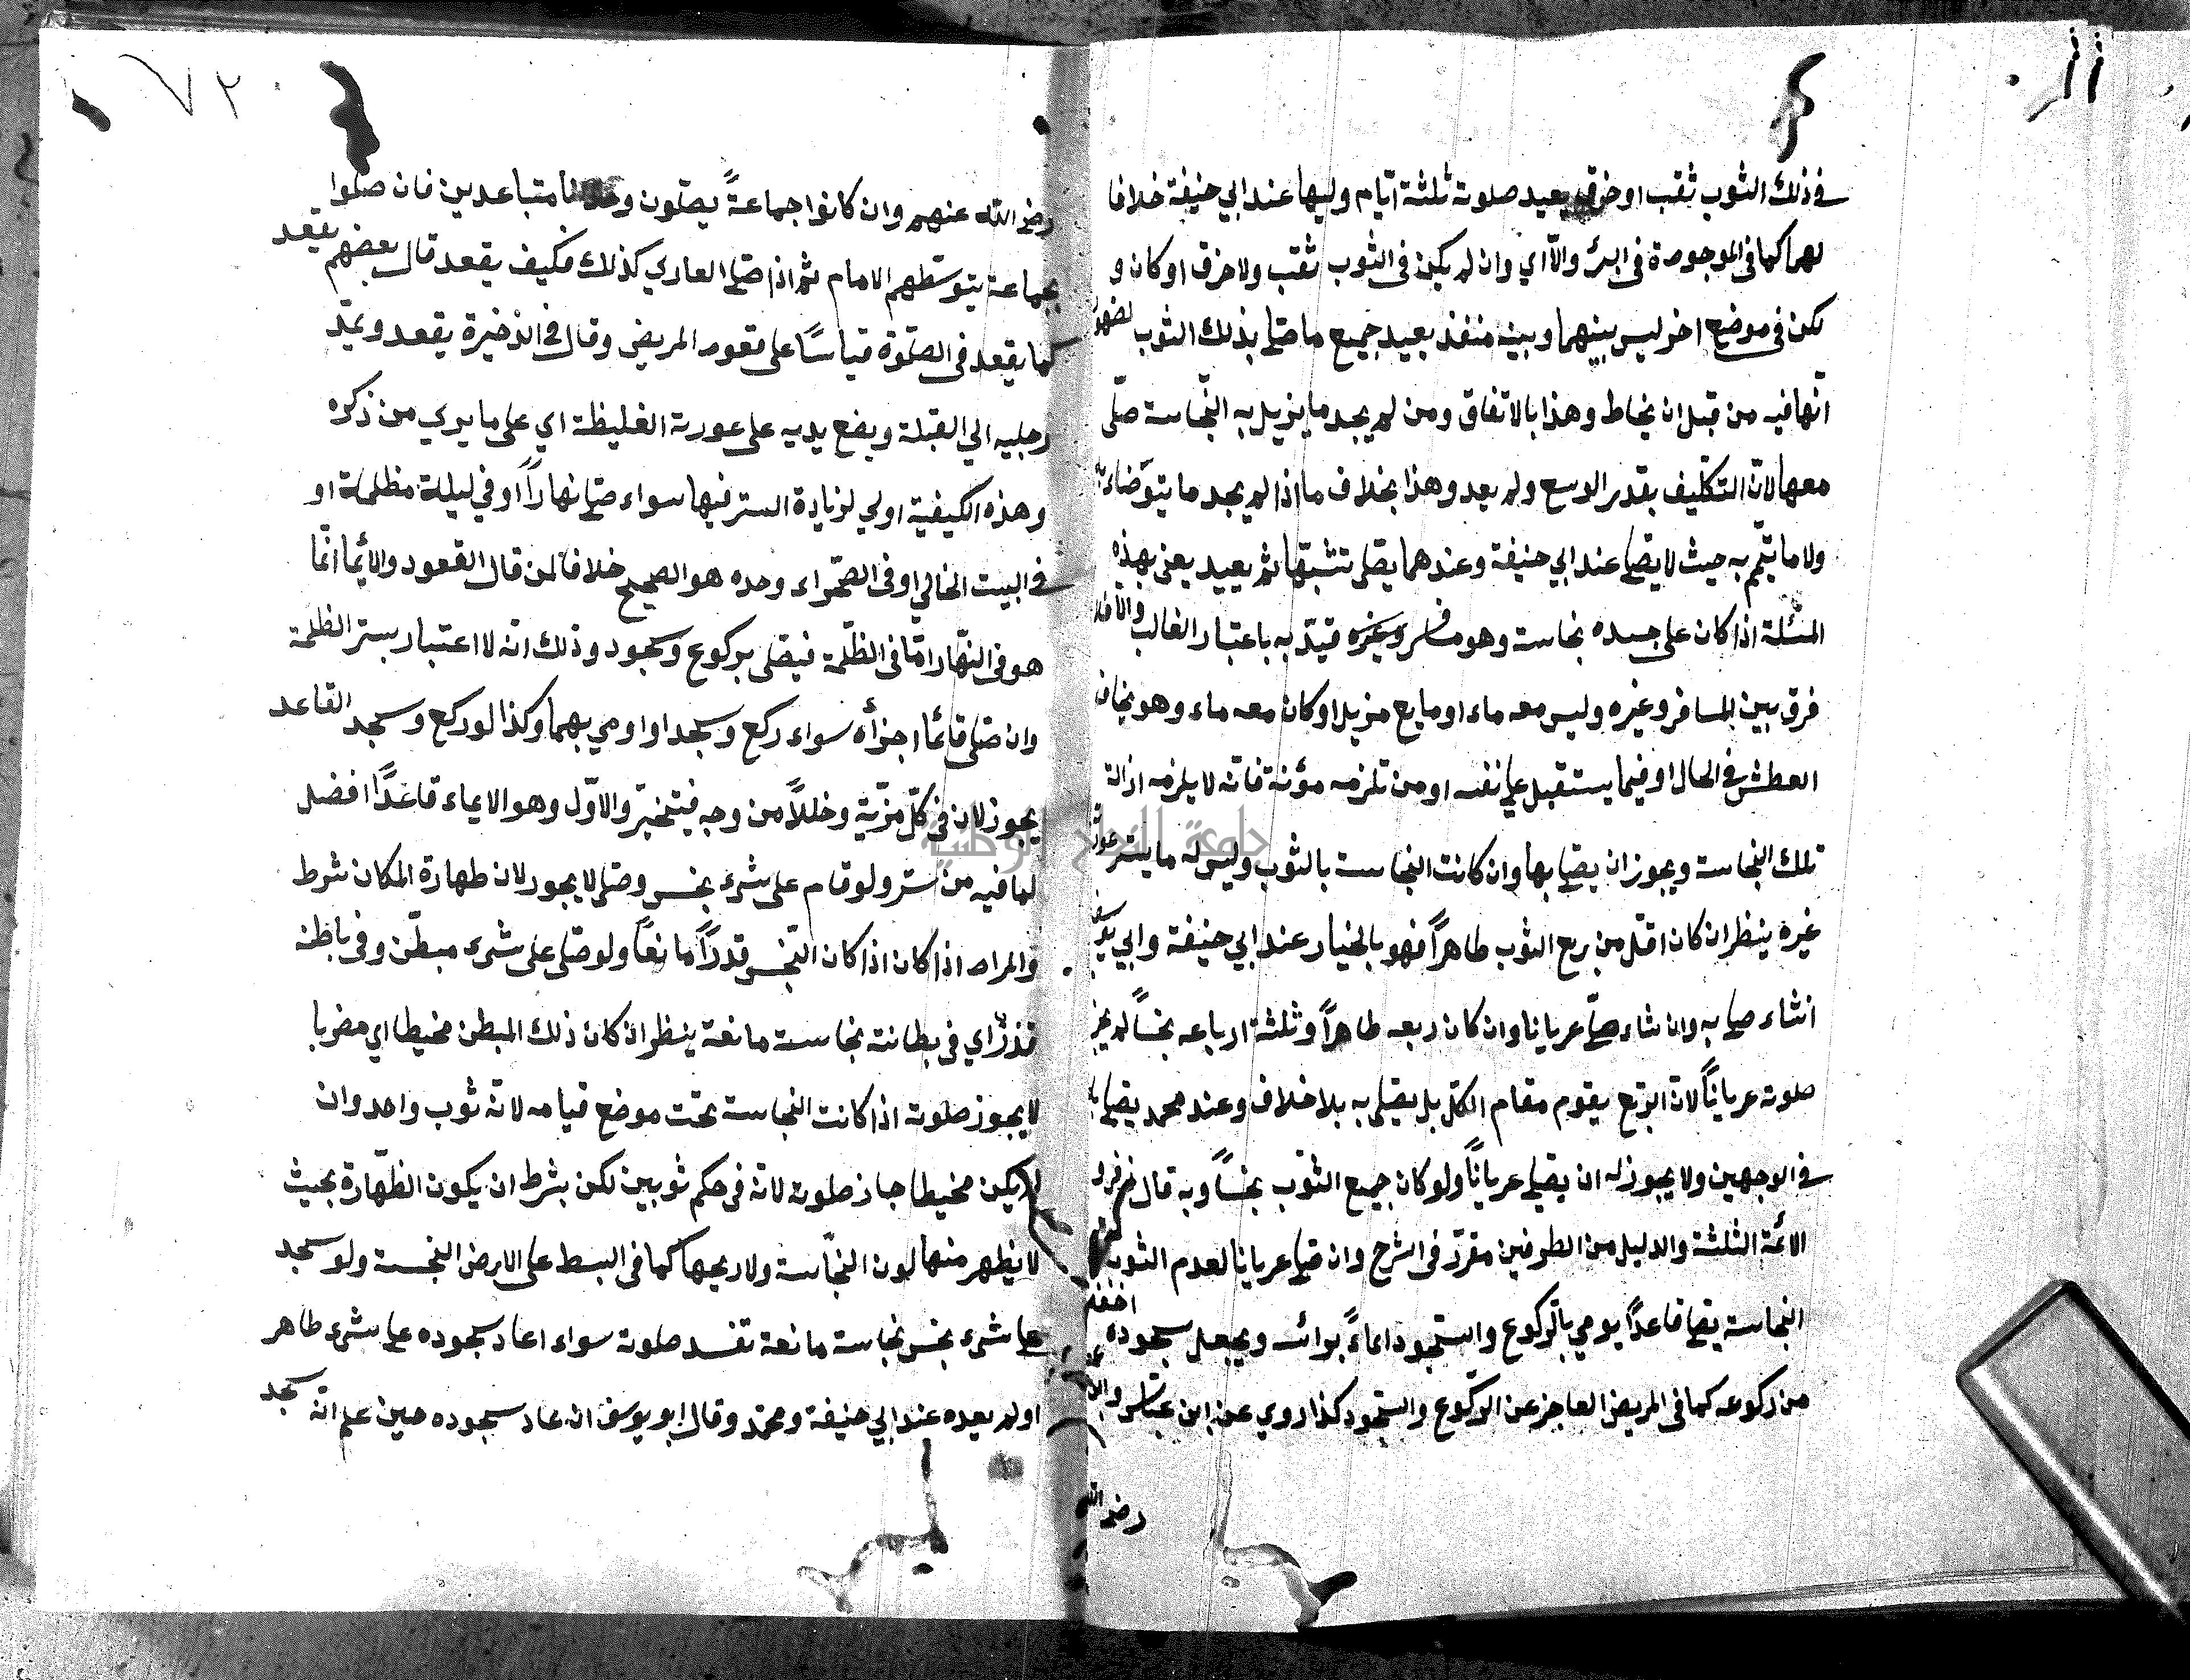 في ذلك الثوب ثقب او خرق يعيد صلوة ثلثة ايّام ولياليها عند ابي حنيفة خلافا
لهما كما في الموجودة في البئر والّا اي وان لم يكن في الثوب ثقب ولا خرق او كان و
لكن في موضع اخر ليس بينهما وبينه منفذ يعيد جميع ما صلي بذلك الثوب لظهور
انّها فيه من قبل ان يخاط وهذا بالاتفاق ومن لم يجد ما يزيل به النّجاسة صلّى
معها لانّ التكليف بقدر الوسع ولم يعد وهذا بخلاف ما اذا لم يجد ما يتوضاء به
ولا ما يتيمّم به حيث لا يصلي عند ابي حنيفة وعندهما يصلي تشبّها ثم يعيد يعني بهذه
المسئلة اذا كان على جسده نجاسة وهو مسافر وغيره قيّد به باعتبار الغالب والّا فلا
فرق بين المسافر وغيره وليس معه ماء او مايع مزيل او كان معه ماء وهو يخاف
العطش في الحال او فيما يستقبل علي نفسه او من تلزمه مؤنة فانّه لا يلزمه ازالة
تلك النجاسة ويجوز ان يصلي بها وان كانت النجاسة بالثوب وليس له ما يستر عورته
غيره ينظر ان كان اقلّ من ربع الثوب طاهراً فهو بالخيار عند ابي حنيفة وابي يوسف
انشاء صلي به وان شاء صلّي عريانا وان كان ربعه طاهراً وثلثة ارباعه نجساً لم يجز
صلوته عرياناً لانّ الرّبع يقوم مقام الكلّ بل يصلي به بلا خلاف وعند محمد يصلي به
في الوجهين ولا يجوز له ان يصلي عرياناً ولو كان جميع الثوب نجساً وبه قال زفر و
الائمّة الثلثة والدليل من الطرفين مقرّر في الشرح وان صلي عريانا لعدم الثوب
النجاسة يصلي قاعداً يومي بالرّكوع والسّجود ايماءً براسه ويجعل سجوده اخفض
من ركوعه كما في المريض العاجز عن الرّكوع والسّجود كذا روي عن ابن عبّاس وابن عمر
رضي الله
٧٢
رضي الله عنهم وان كانوا جماعةً يصلّون وحدانا متباعدين فان صلّوا
بجماعة يتوسّطهم الامام ثم اذا صلي العاري كذلك فكيف يقعد قال بعضهم يقعد
كما يقعد في الصّلوة قياسًا على قعود المريض وقال في الذّخيرة يقعد ويمدّ
رجليه الي القبلة ويضع يديه على عورته الغليظة اي على ما يوي من ذكره
وهذه الكيفية اولي لزيادة الستر فيها سواء صلي نهاراً او في ليلة مظلمة او
في البيت الخالي او في الصّحراء وحده هو الصحيح خلافا لمن قال القعود والايما انّما
هو في النّهار امّا في الظّلمة فيصلي بركوع وسجود وذلك انّه لا اعتبار بستر الظلمة
وان صلي قائما اجزأه سواء ركع وسجد او اومي بهما وكذا لو ركع وسجد القاعد
يجوز لان في كلّ مزّية وخللاً من وجه فيتخيّر والاوّل وهو الايماء قاعداً افضل
لما فيه من ستر ولو قام على شيء نجس وصلي لا يجوز لان طهارة المكان شرط
والمراد اذا كان اذا كان النّجس قدراً مانعاً ولو صلّي على شيء مبطّن وفي باطنه
قذرٌ اي في بطانته نجاسة مانعة ينظر ان كان ذلك المبطن مخيطا اي مضربا
لا يجوز صلوته اذا كانت النجاسة تحت موضع قيامه لانّه ثوب واحد وان
لم يكن مخيطا جاز صلوته لانّه في حكم ثوبين لكن بشرط ان يكون الظّهارة بحيث
لا يظهر منها لون النجّاسة ولا ريحها كما في البسط على الارض النجسة ولو سجد
علي شيء نجس نجاسة مانعة تفسد صلوته سواء اعاد سجوده علي شيء طاهر
او لم يعده عند ابي حنيفة ومحمّد وقال ابو يوسف ان عاد سجوده حين علم انّه سجد
جامعة النجاح الوطنية